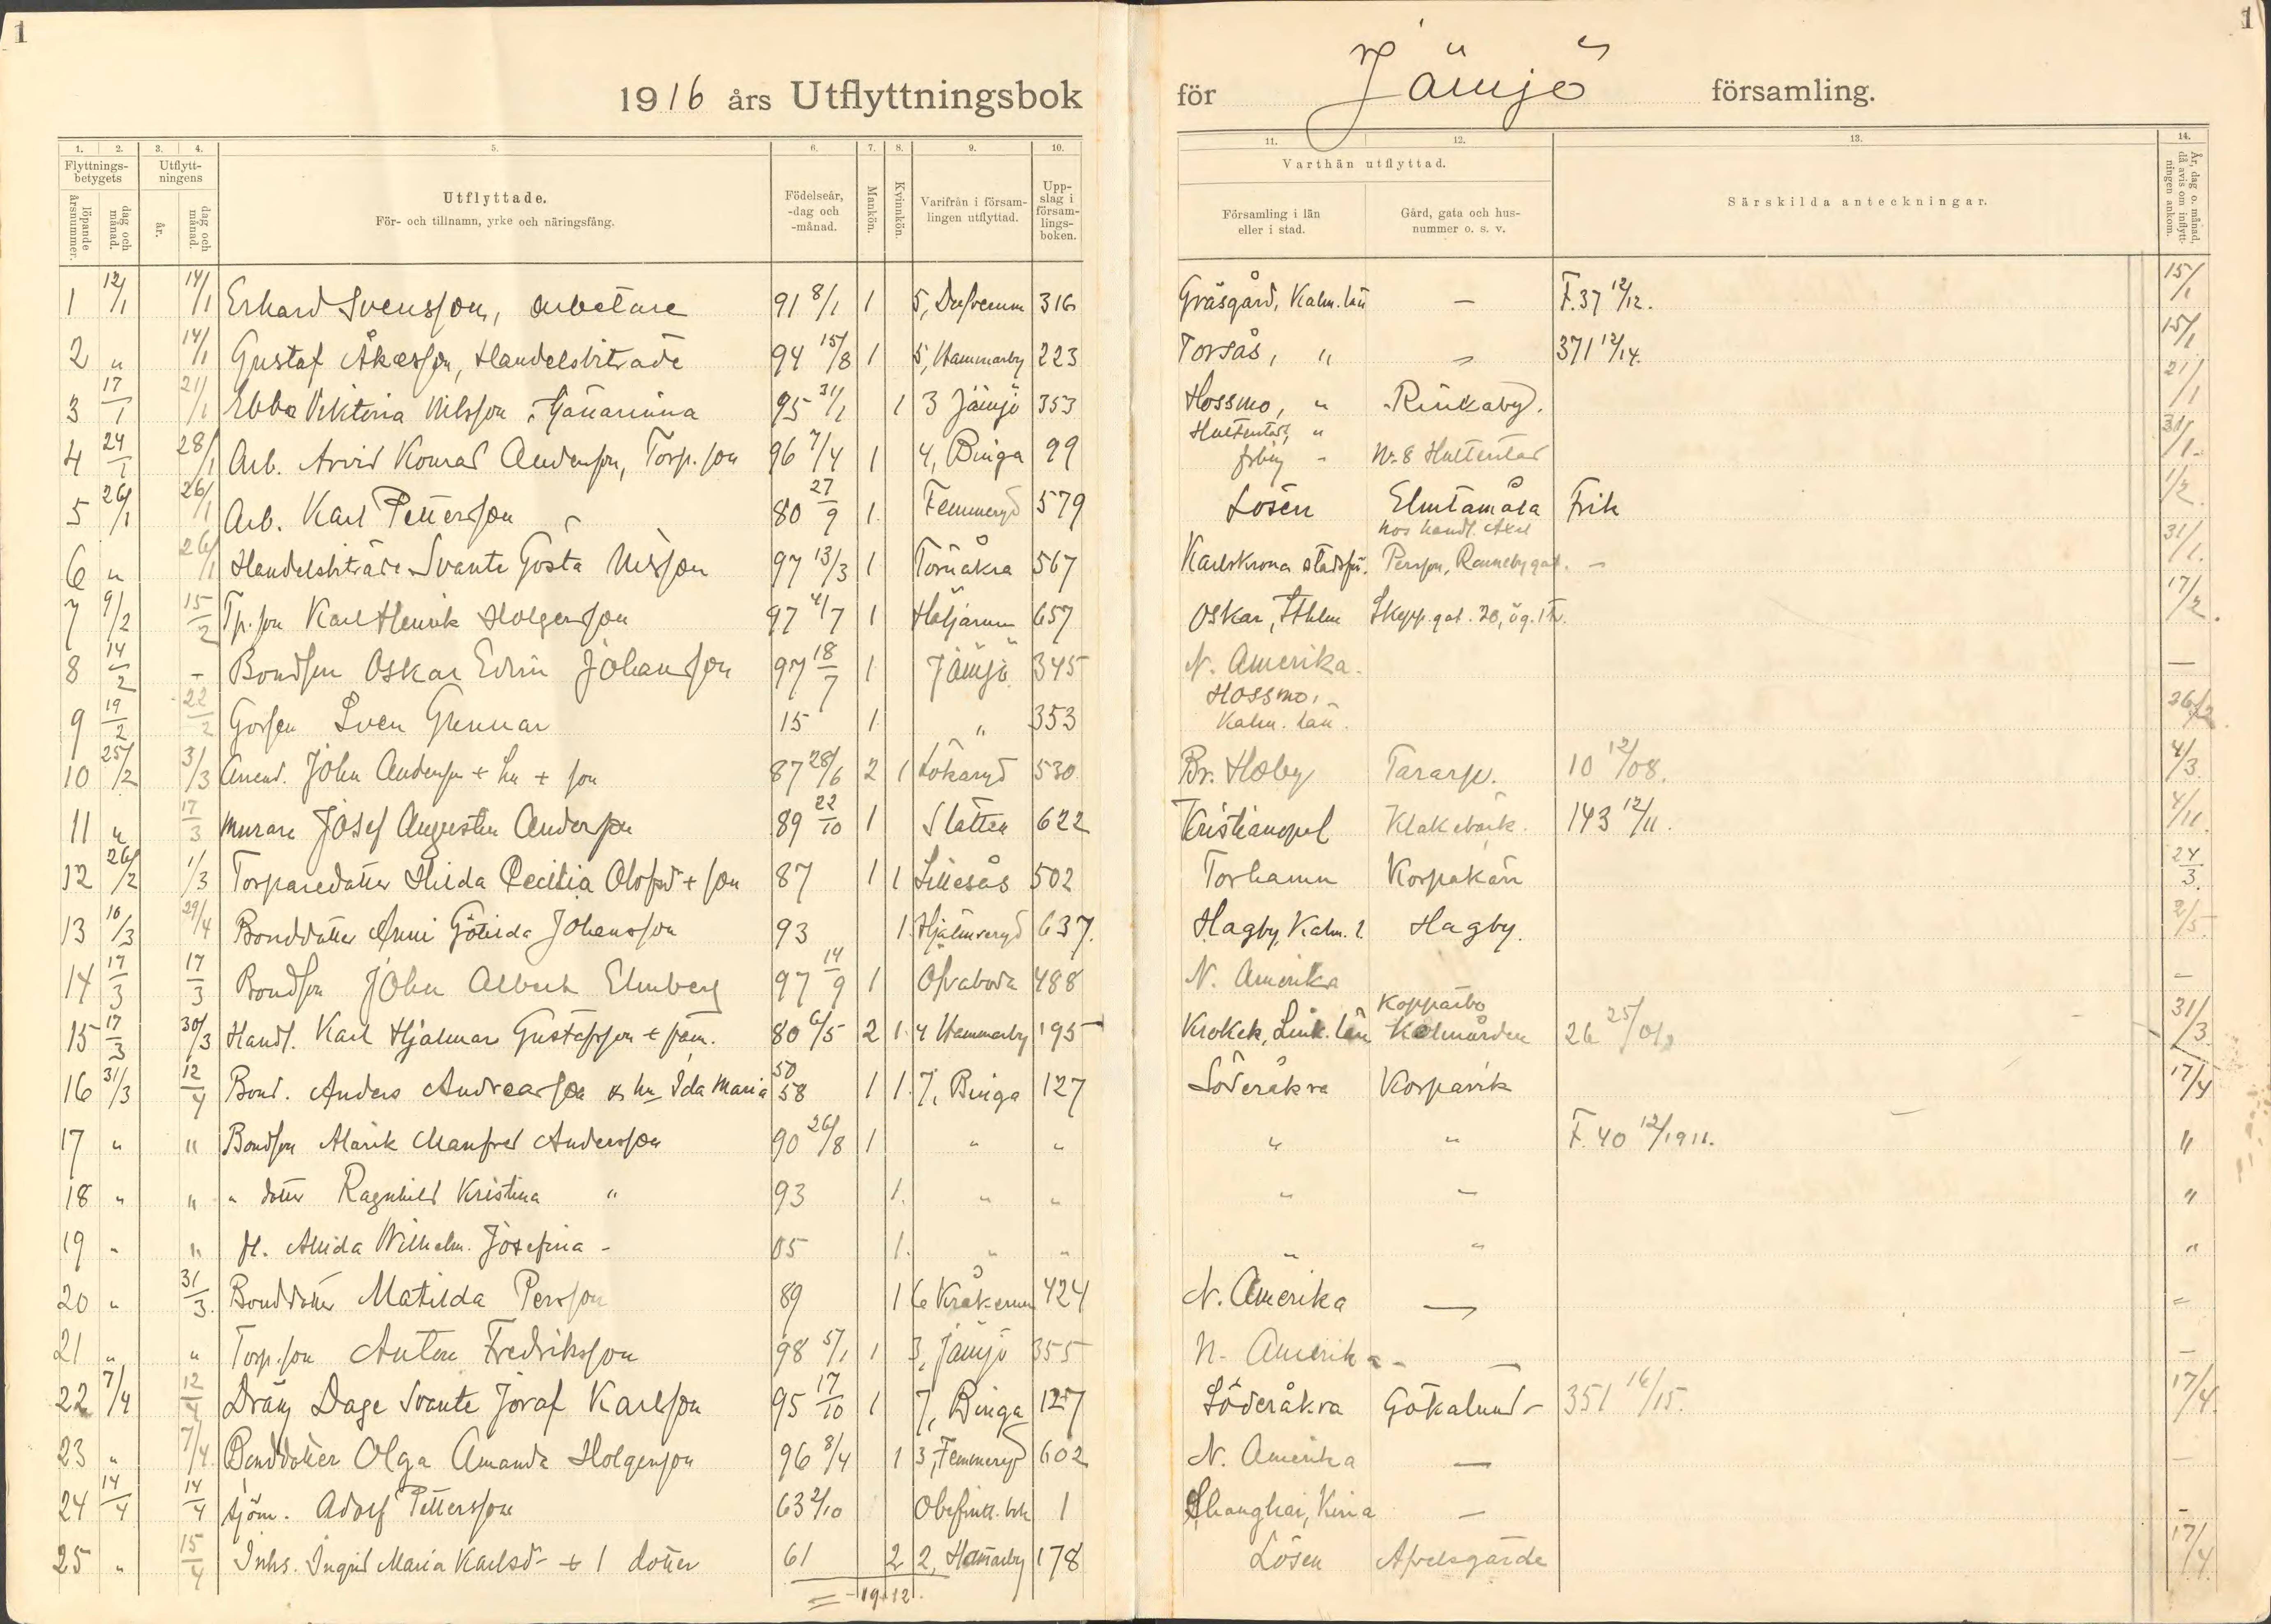 1
1916 års Utflyttningsbok
för Jämjö församling.
1
1. 2. 3. 4. 5. 6. 7. 8. 9. 10. 11. 12. 13. 14.
Flyttningsbetygets
löpande årsnummer.
dag och månad.
Utflyttningens
år.
dag och månad.
Utflyttade.
För- och tillnamn, yrke och näringsfång.
Födelseår, -dag och -månad.
Mankön.
Kvinnkön.
Varifrån i församlingen utflyttad.
Uppslag i församlingsboken.
Varthän utflyttad.
Församling i län eller i stad.
Gård, gata och husnummer o. s. v.
Särskilda anteckningar.
År, dag o. månad, då avis om inflyttningen ankom.
1 12/1 14/1 Erhard Svensson, arbetare 91 8/1 1 5, 316 Gräsgård, Kalm. län – F. 37 12/12. 15/1
2 " 14/1 Gustaf Åkesson, Handelsbiträde 94 15/8 1 5, Hammarby 223 Torsås, " " 371 12/14. 15/1
3 17/1 21/1 Ebba Viktoria Nilsson, Tjänarinna 95 31/1 1 3 Jämjö 353 Hossmo, " Rinkaby. 21/1
4 24/1 28/1 Arb. Arvid Konrad Andersson, Torp. son 96 7/4 1 4, Binga 99 Hultentorp, " No 8 31/1.
5 26/1 26/1 Arb. Karl Pettersson 80 27/9 1 Femmeryd 579 Lösen Elmtamåla Frik 1/2
6 " 26/1 Handelsbiträde Svante Gösta Nilsson 97 13/3 1 Tornåkra 567 Karlskrona stadsfö. hos handl. Axel Persson, Ronnebygat. – 31/1.
7 9/2 15/2 Tp. son Karl Henrik Holgersson 97 4/7 1 Hötjärnen 657 Oskar, Sthlm Skepp.gat. 20, ög. 1 tr. 17/2.
8 14/2 – Bondson Oskar Edvin Johansson 97 18/7 1 Jämjö 345 N. Amerika. –
9 19/2 22/2 Gossen Sven Gunnar 15 1 " 353 Hossmo, Kalm. län. 26/2.
10 25/2 3/3 Arrend. John Andersson + hu + son 87 28/6 2 1 Lökaryd 530 Br. Hoby Tararp. 10 12/08. 4/3.
11 " 17/3 Murare Josef Augustin Andersson 89 22/10 1 Slätten 622 Kristianopel Klakebäck. 143 12/11. 4/11.
12 26/2 1/3 Torparedotter Hilda Cecilia Olofsd + son 87 1 1 Lillesås 502 Torhamn Korpakärr 24/3.
13 16/3 29/4 Bonddotter Anni Götilda Johansson 93 1 Hjälmseryd 637. Hagby, Kalm. l. Hagby. 2/5.
14 17/3 17/3 Bondson John Albert Elmberg 97 14/9 1 Ofvaboda 488 N. Amerika –
15 17/3 30/3 Handl. Karl Hjalmar Gustafsson + fam. 80 6/5 2 1 4 Hammarby 195 Krokek, Link. län Kopparbo Kolmården 26 25/01. 31/3
16 31/3 12/4 Bond. Anders Andreasson & hu Ida Maria 50 58 1 1 7, Binga 127 Söderåkra Korpavik 17/4
17 " " Bondson Alarik Manfred Andersson 90 26/8 1 " " " " F. 40 12/1911. "
18 " " " dotter Ragnhild Kristina " 93 1. " " " " "
19 " " H. Alida Wilhelm. Josefina – 05 1. " " " " "
20 " 31/3. Bonddotter Matilda Persson 89 1 6 Kråkerum 424 N. Amerika — "
21 " " Torp. son Anton Fredriksson 98 5/1 1 3, Jämjö 355 N. Amerika – – –
22 7/4 12/4 Dräng Dage Svante Joraf Karlsson 95 17/10 1 7, Binga 127 Söderåkra Gökalund – 351 16/15. 17/4.
23 " 7/4 Bonddotter Olga Amanda Holgersson 96 8/4 1 3, Femmeryd 602 N. Amerika — –
24 14/4 14/4 sjöm. Adolf Pettersson 63 2/10 Obefintl. bok 1 Shanghai, Kina — –
25 " 15/4 Inhs. Ingrid Maria Karlsd – + 1 dotter 61 2 2, Hamarby 178 Lösen Afvelsgärde 17/4.
= 19+12.